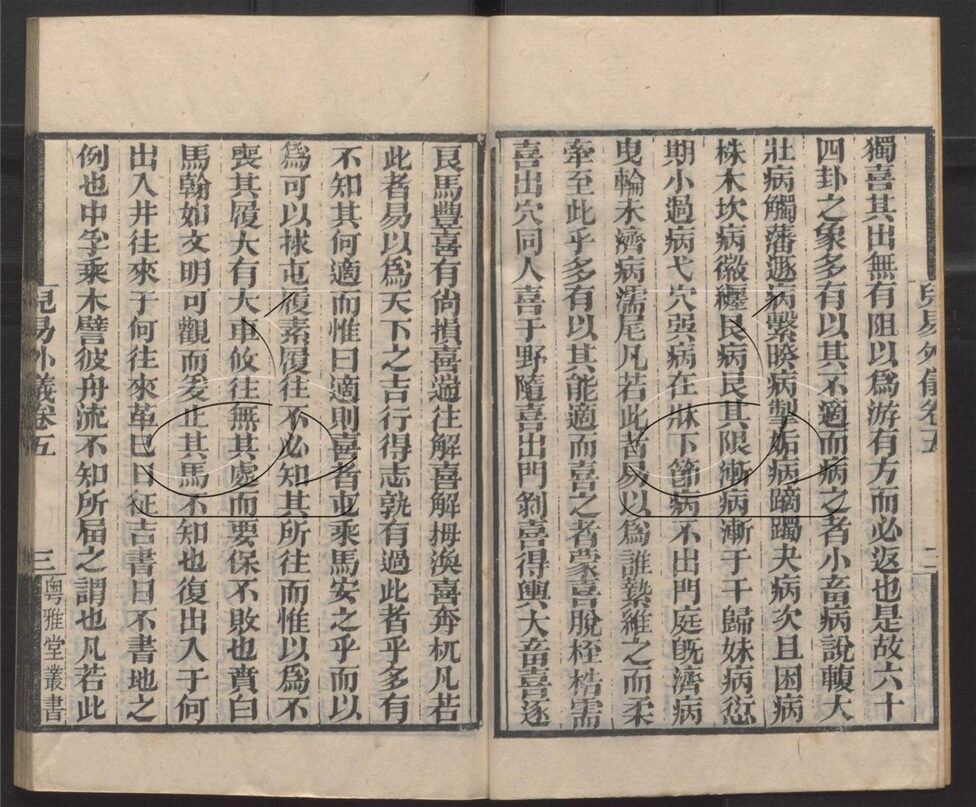 兒易外儀卷五
二
獨喜其出無有阻以爲游有方而必返也是故六十
四卦之象多有以其不適而病之者小畜病說輹大
壯病觸藩遯病繫睽病掣姤病蹢躅夬病次且困病
株木坎病徽纆艮病艮其限漸病漸于干歸妹病愆
期小過病弋穴巽病在牀下節病不出門庭旣濟病
曳輪未濟病濡尾凡若此者易以爲誰縶維之而柔
牽至此乎多有以其能適而喜之者蒙喜脫桎梏需
喜出穴同人喜于野隨喜出門剝喜得輿大畜喜逐
良馬豐喜有尙損喜遄往解喜解拇渙喜奔杌凡若
此者易以爲天下之吉行得志孰有過此者乎多有
不知其何適而惟曰適則喜者屯乘馬安之乎而以
爲可以求屯履素履往不必知其所往而惟以爲不
喪其履大有大車攸往無其處而要保不敗也賁白
馬翰如文明可觀而爰止其馬不知也復出入于何
出入井往來于何往來革巳日征吉書日不書地之
例也中孚乘木譬彼舟流不知所屆之謂也凡若此
兒易外儀卷五
三
粵雅堂叢書